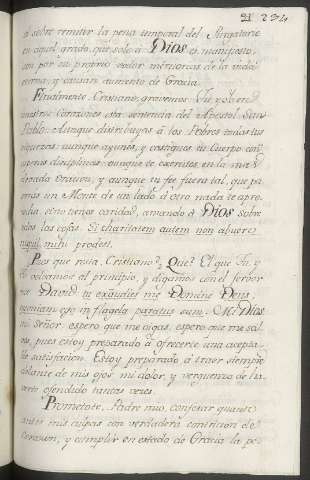 21 234
ó sobre remitir la pena temporal del Purgatorio
en aquel grado, que solo à Dios es manifiesto,
son por su proprio valor meritorias de la vida
eterna, y causan aumento de Gracia.
Finalmente, Cristiano, gravemos Tu, y yo en
nuestros Corazones esta sentencia del Apostol San
Pablo: Aunque distribuyas à los Pobres todas tus
riquezas, aunque ayunes, y castigues tu Cuerpo con
disciplinas, aunque te exercites en la mas
Oracion, y aunque tu fee fuera tal, que pa
un Monte de un lado à otro nada te apro
si no tienes caridad, amando à Dios sobre
todas las cosas. Si charitatem autem non abuero
nihil mihi prodest.
Pues que resta, Cristiano? Que? El que Tu, y
Yo volvamos al principio, y digamos con el fervor
David: tu exaudies me Domine Deus
quoniam ego in flagela paratus sum. Mi Dios
mi Señor espero que me oigas, espero que me sal
ves, pues estoy preparado à ofrecerte una acepta
ble satisfacion. Estoy preparado à traer siempre
delante de mis ojos mi dolor, y verguenza de ha
verte ofendido tantas veces.
Prometote, Padre mio, confesar quanto
antes mis culpas con verdadera contricion de
Corazon, y cumplir en estado de Gracia la pe-